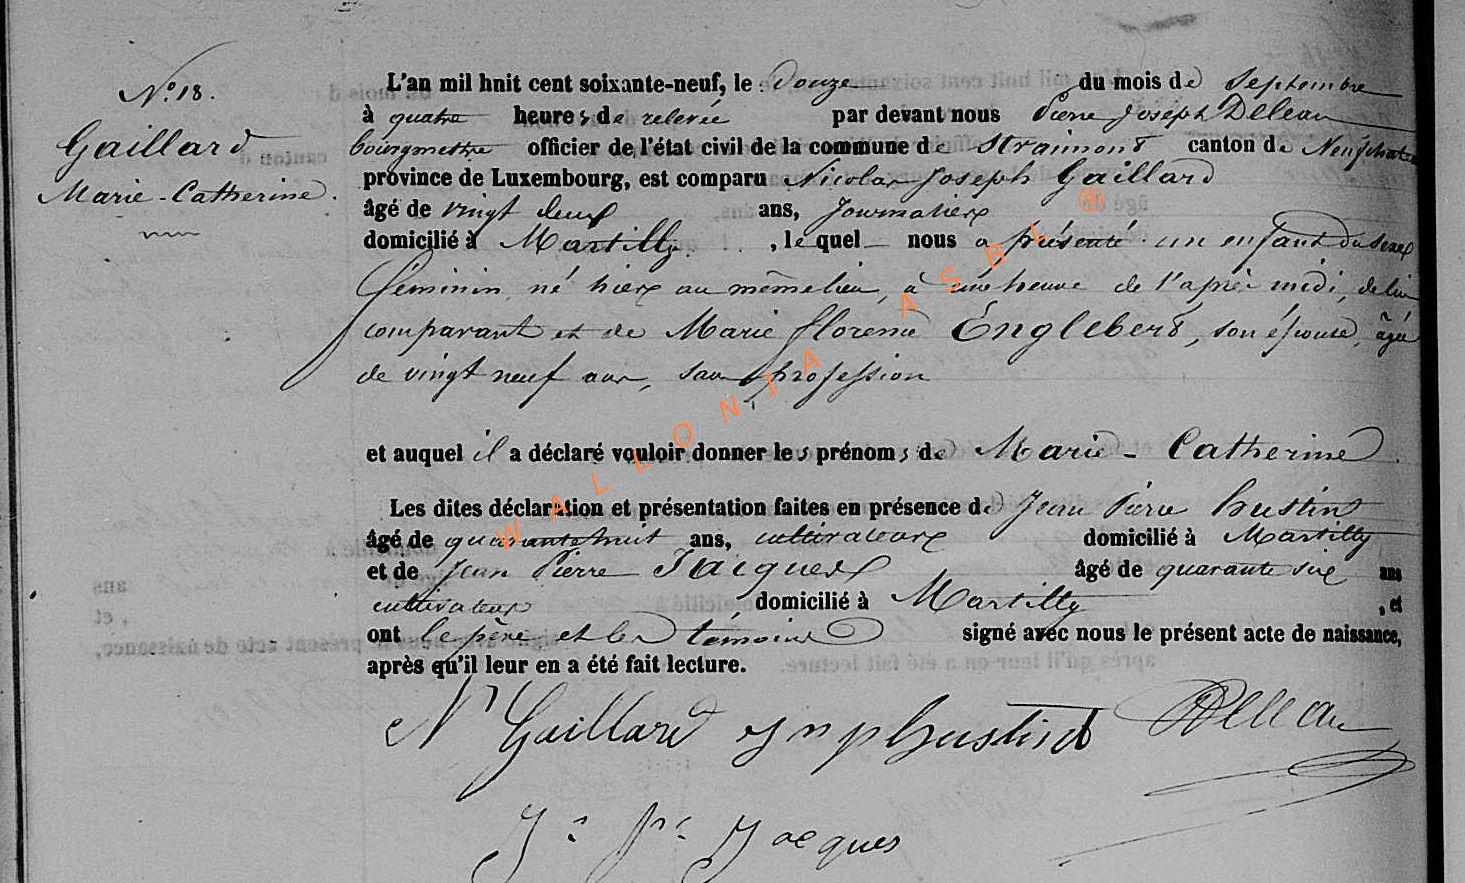 N° 18.
Gaillard
Marie-Catherine.
L'an mil huit cent soixante-neuf, le douze du mois de Septembre
à quatre heures de relevée par devant nous Pierre Joseph Deleau
bourgmestre officier de l'état civil de la commune de Straimont canton de Neufchateau
province de Luxembourg, est comparu Nicolas Joseph Gaillard
âgé de vingt deux ans, Journalier
domicilié à Martilly. , lequel nous a présenté un enfant du sexe
féminin, né hier au même lieu, à une heure de l'après midi, de lui
comparant et de Marie Florence Englebert, son épouse, âgée
de vingt neuf ans, sans profession
et auquel il a déclaré vouloir donner les prénoms de Marie-Catherine.
Les dites déclaration et présentation faites en présence de Jean Pierre hustin
âgé de quarante huit ans, cultivateur domicilié à Martilly
et de Jean Pierre Jacques âgé de quarante six ans
cultivateur domicilié à Martilly , et
ont le père et les témoins signé avec nous le présent acte de naissance,
après qu'il leur en a été fait lecture.
N Gaillard hustin Deleau
Jn Pre Jacques
WALLONIA ASBL ®